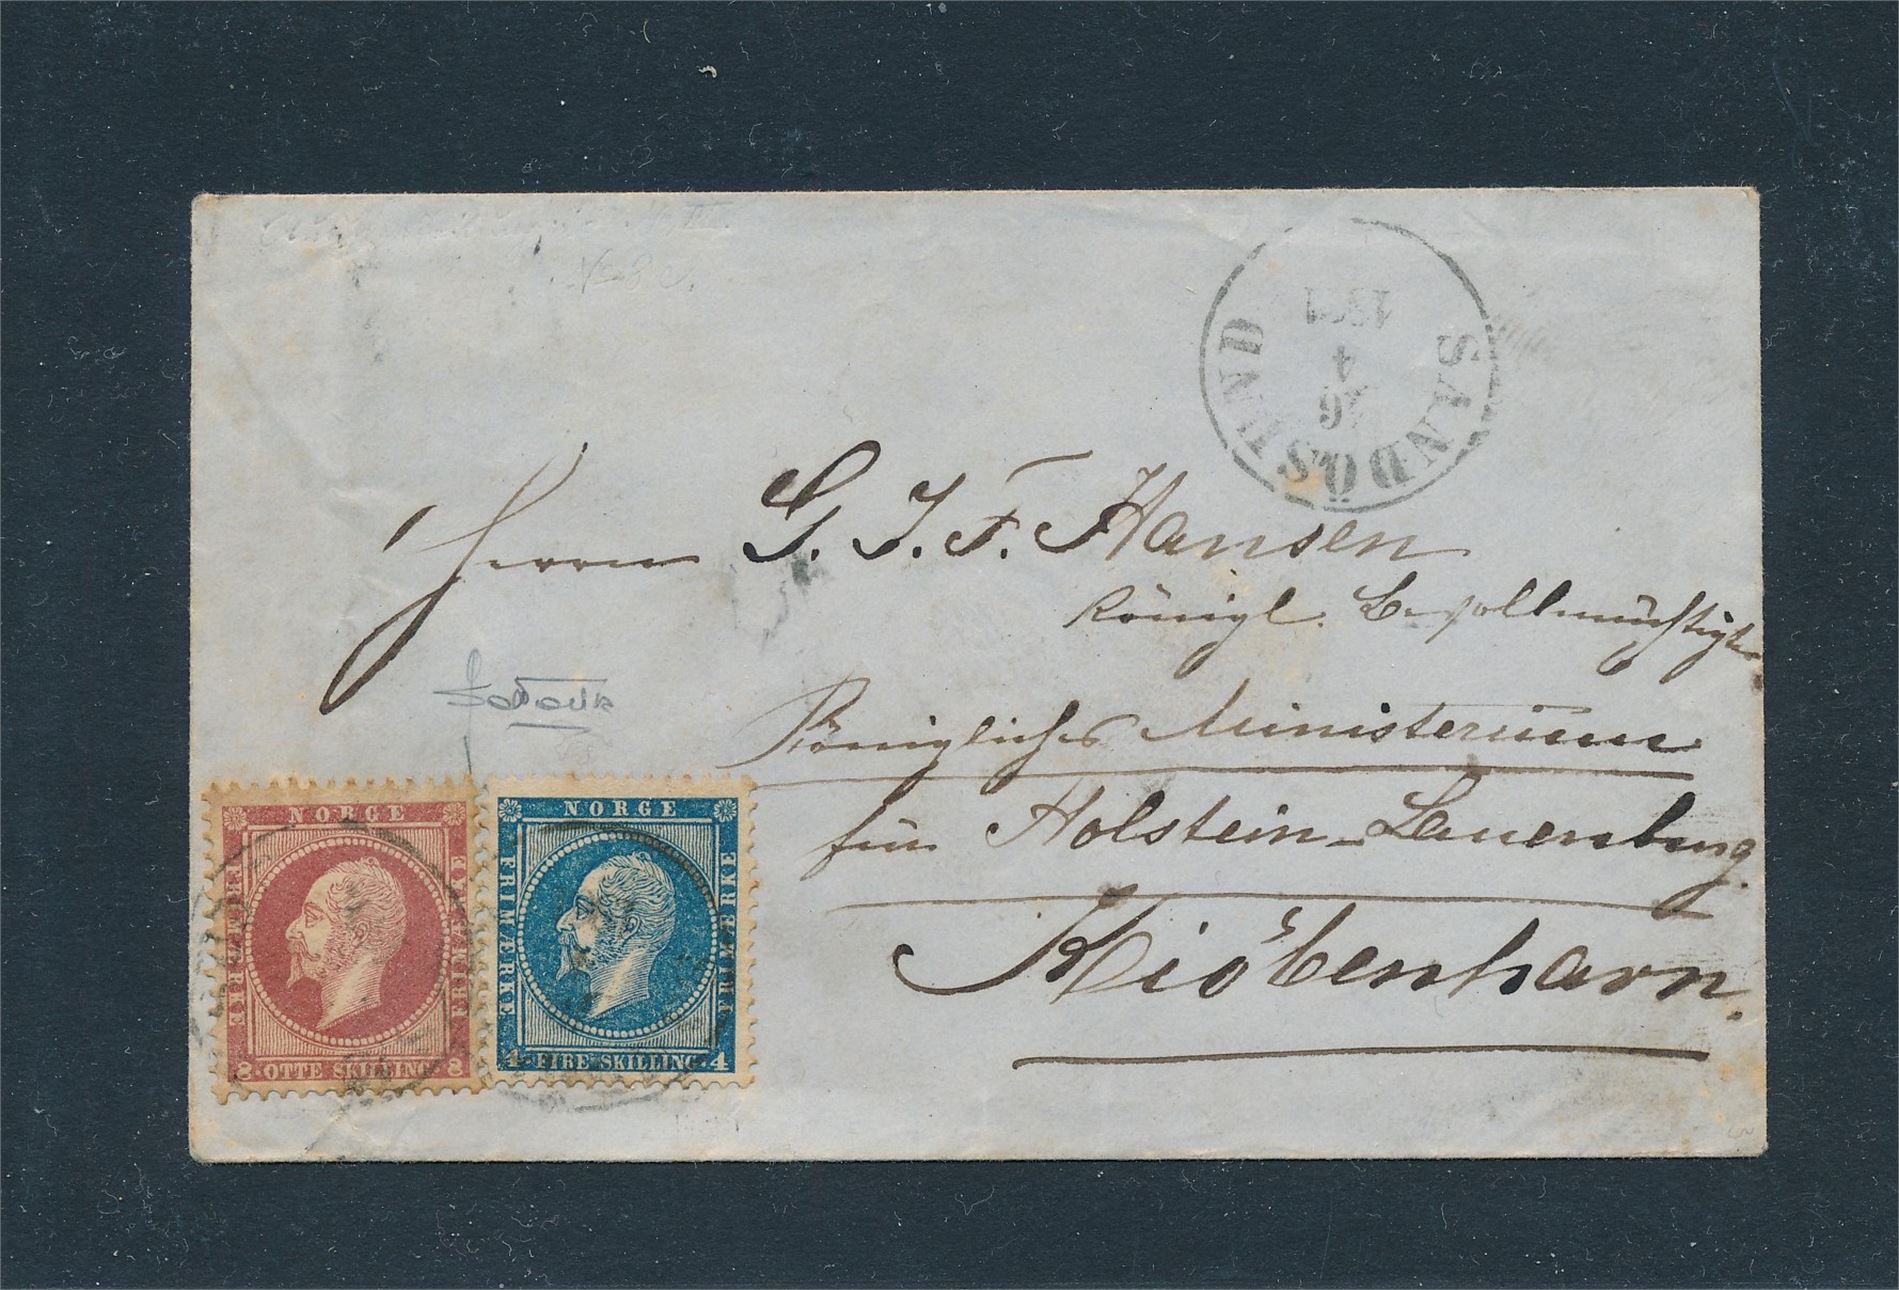 SANDÖSUND
26
4
Herrn G. J. F. Hansen
Königl. Bevollmächtigte
Königliches Ministerium
für Holstein-Lauenburg.
Kiöbenhavn.
NORGE
FRIMÆRKE
FRIMÆRKE
8 OTTE SKILLING 8
NORGE
FRIMÆRKE
FRIMÆRKE
4 FIRE SKILLING 4